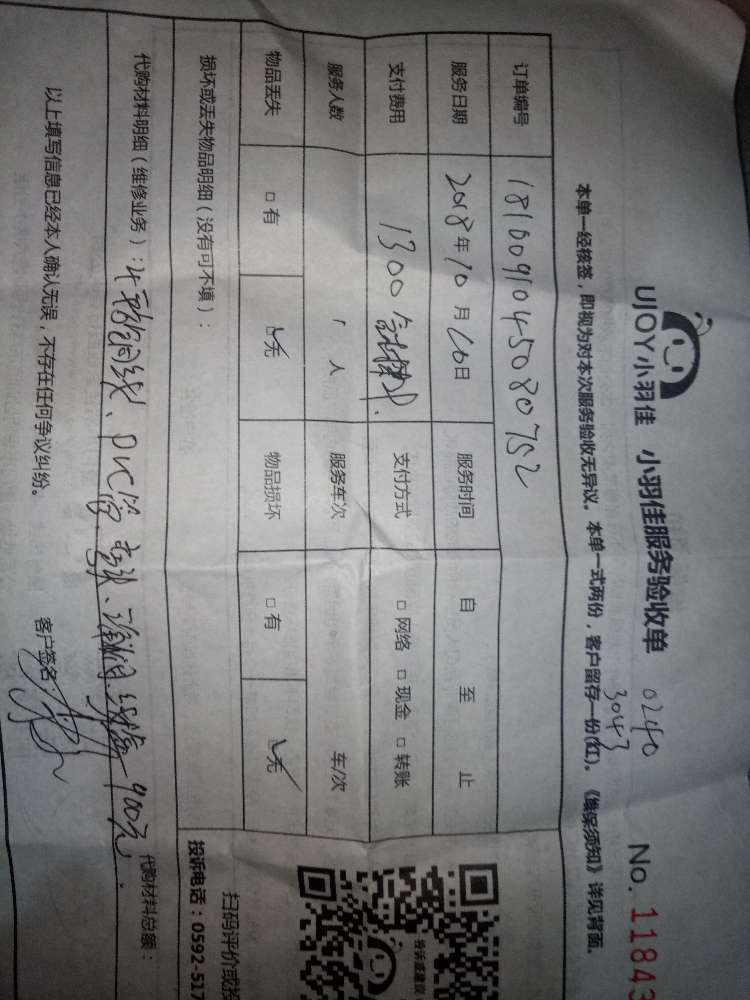 UJOY小羽佳 小羽佳服务验收单 0240 3043 No. 11843
本单一经核签，即视为对本次服务验收无异议。本单一式两份，客户留存一份(红)。《维保须知》详见背面。
订单编号 1810091045080752
服务日期 2018年10月10日 服务时间 自 至 止
支付费用 1300 支付方式 □网络 □现金 □转账
服务人数 1人 服务车次 车/次
物品丢失 □有 ☑无 物品损坏 □有 ☑无
损坏或丢失物品明细（没有可不填）：
代购材料明细（维修业务）：4平方铜线、PVC管 900元. 代购材料总额：
以上填写信息已经本人确认无误，不存在任何争议纠纷。 客户签名：
投诉或建议
扫码评价或投
投诉电话：0592-517